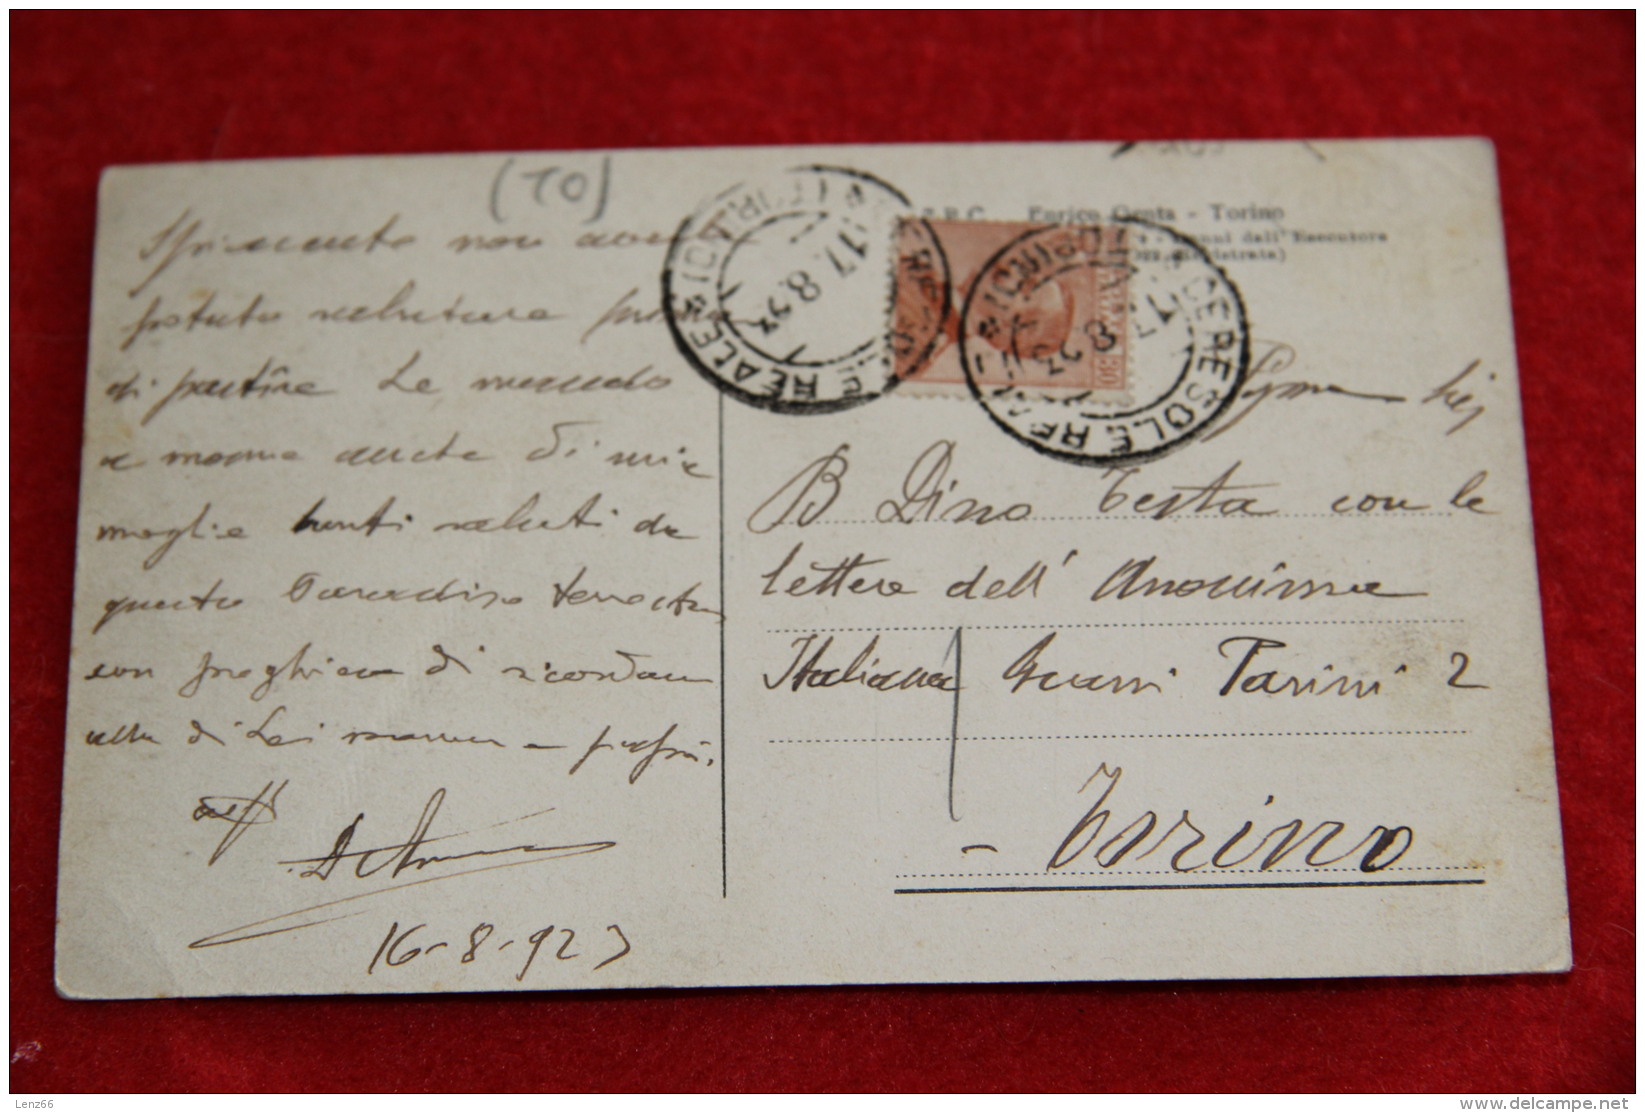 (TO)
non
potuto salutare prima
di partire Le mando
a mezzo anche di mia
moglie tanti saluti da
questo Paradiso terrestre,
con preghiera di ricordarmi
alla di Lei mamma e
aff
16-8-923
Enrico Genta - Torino
dell'Esecutore
CERESOLE REALE
(TORINO)
17.8.23
CERESOLE REALE
(TORINO)
17.8.23
30
B Dino Testa con le
lettere dell' Anonima
Italiana 2
- Torino
Lenz66
www.delcampe.net